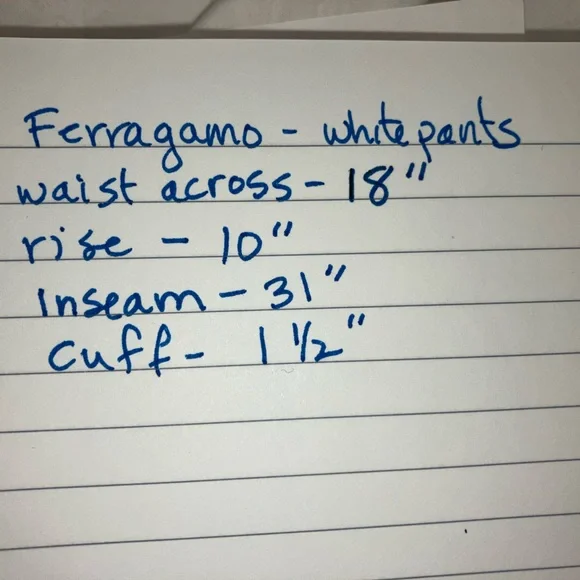 Ferragamo - white pants
waist across - 18"
rise - 10"
Inseam - 31"
Cuff - 1 1/2"